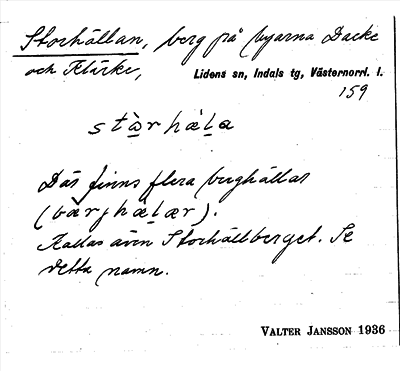 Storhällan, berg på byarna Dacke
och Flärke,
Lidens sn, Indals tg, Västernorrl. l.
159
stàrhæ̀la
Där finns flera berghällar
(bærjhælær).
Kallas även Storhällberget. Se
detta namn.
VALTER JANSSON 1936